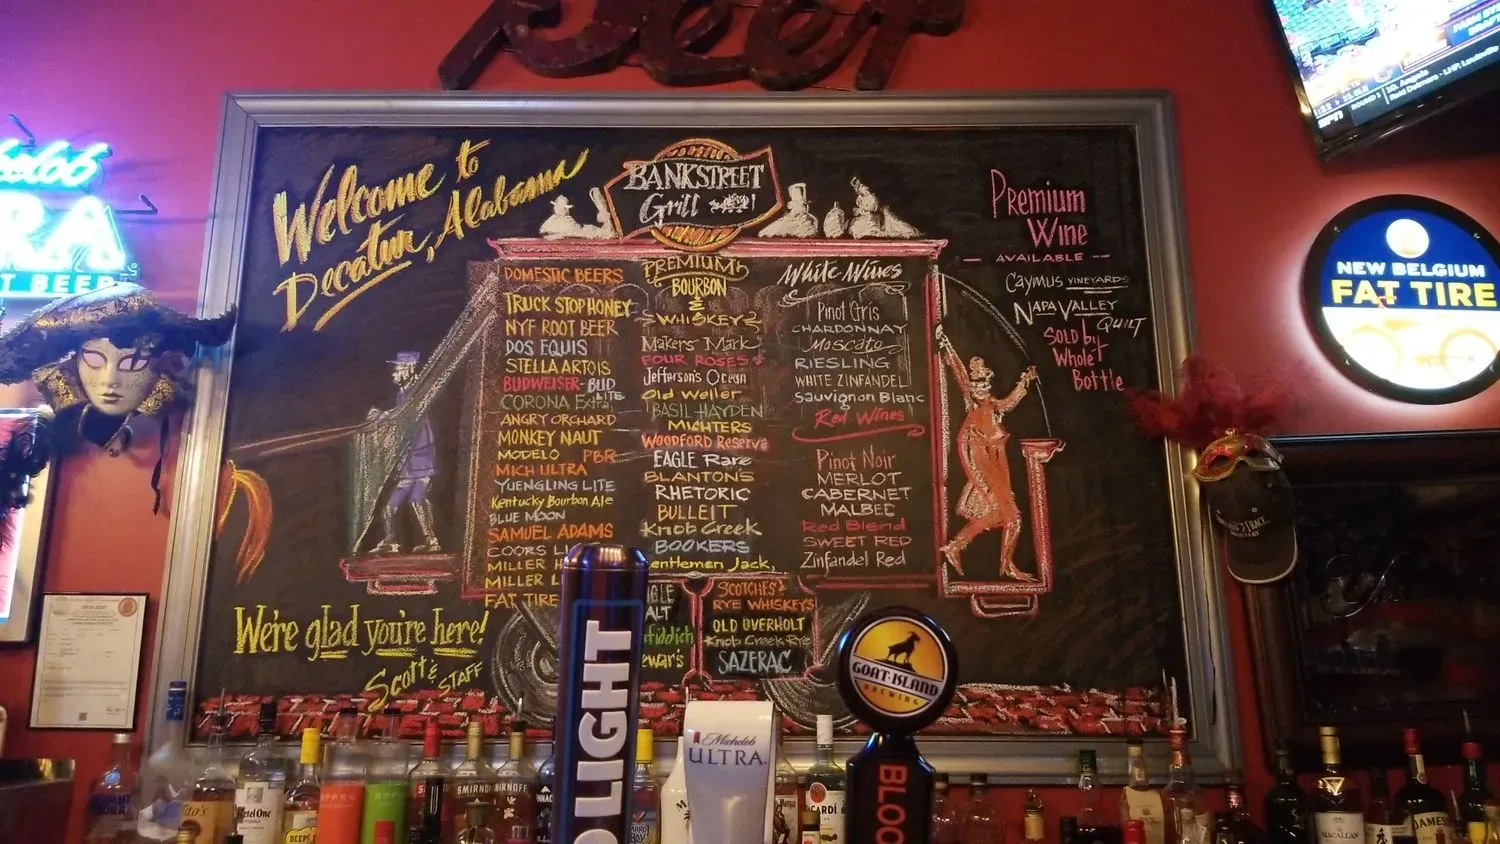 Beer
Welcome to
Decatur, Alabama
BANKSTREET
Grill
DOMESTIC BEERS
TRUCK STOP HONEY
NYF ROOT BEER
DOS EQUIS
STELLA ARTOIS
BUDWEISER-BUD
LITE
CORONA Extra
ANGRY ORCHARD
MONKEY NAUT
MODELO PBR
MICH ULTRA
YUENGLING LITE
Kentucky Bourbon Ale
BLUE MOON
SAMUEL ADAMS
COORS L
MILLER H
MILLER L
FAT TIRE
PREMIUM
BOURBON
&
WHISKEY
Makers Mark
FOUR ROSES
Jefferson's Ocean
Old Weller
BASIL HAYDEN
MICHTERS
WOODFORD Reserve
EAGLE Rare
BLANTON'S
RHETORIC
BULLEIT
Knob Creek
BOOKERS
entleman Jack,
ALT
fiddich
ewar's
SCOTCHES
RYE WHISKEYS
OLD OVERHOLT
Knob Creek Rye
SAZERAC
White Wines
Pinot Gris
CHARDONNAY
Moscato
RIESLING
WHITE ZINFANDEL
Sauvignon Blanc
Red Wines
Pinot Noir
MERLOT
CABERNET
MALBEC
Red Blend
SWEET RED
Zinfandel Red
Premium
Wine
AVAILABLE
Caymus VINEYARDS
NAPA VALLEY
QUILT
SOLD by
Whole
Bottle
We're glad you're here!
Scott &
STAFF
NEW BELGIUM
FAT TIRE
ROUND 1
LIGHT
Michelob
ULTRA
GOAT ISLAND
BREWING
BLOO
RA
T BEER
Ketel One
SMIRNOFF
BACARDI
MACALLAN
JAMES